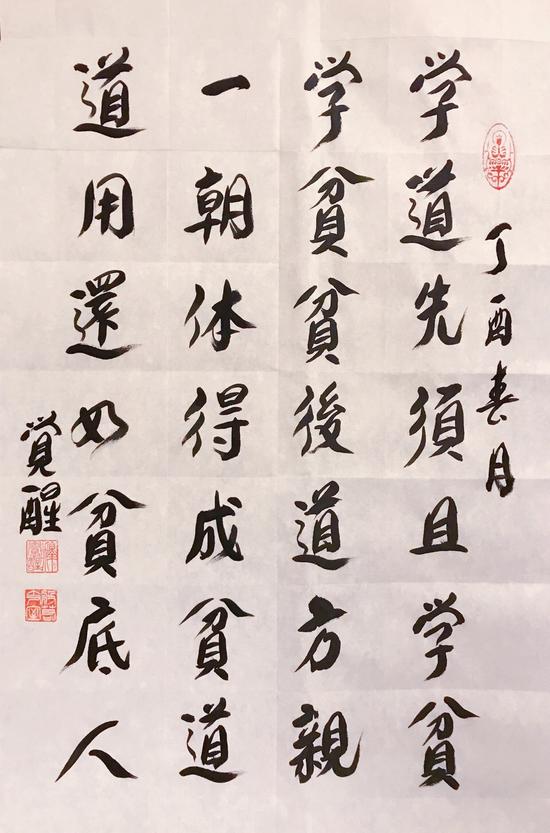 丁酉春月
学道先須且学貧
学貧貧後道方親
一朝体得成貧道
道用還如貧底人
覺醒